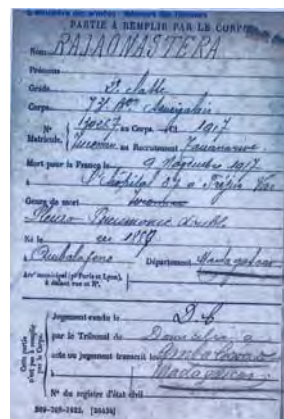 PARTIE À REMPLIR PAR LE CORPS
Nom RAJAONASTERA
Prénoms
Grade 2e classe
Corps 73e Btn Sénégalais
N° au Corps. Cl. 1917
Matricule. Inconnu au Recrutement Tananarive
Mort pour la France le 9 Novembre 1917
à l'hôpital à Fréjus Var
Genre de mort
Pleuro Pneumonie double
Né le en
à Département Madagascar
Arrt municipal (pr Paris et Lyon),
à défaut rue et N°.
Cette partie n'est pas à remplir par le Corps.
Jugement rendu le D.C
par le Tribunal de
acte ou jugement transcrit le
Madagascar
N° du registre d'état civil